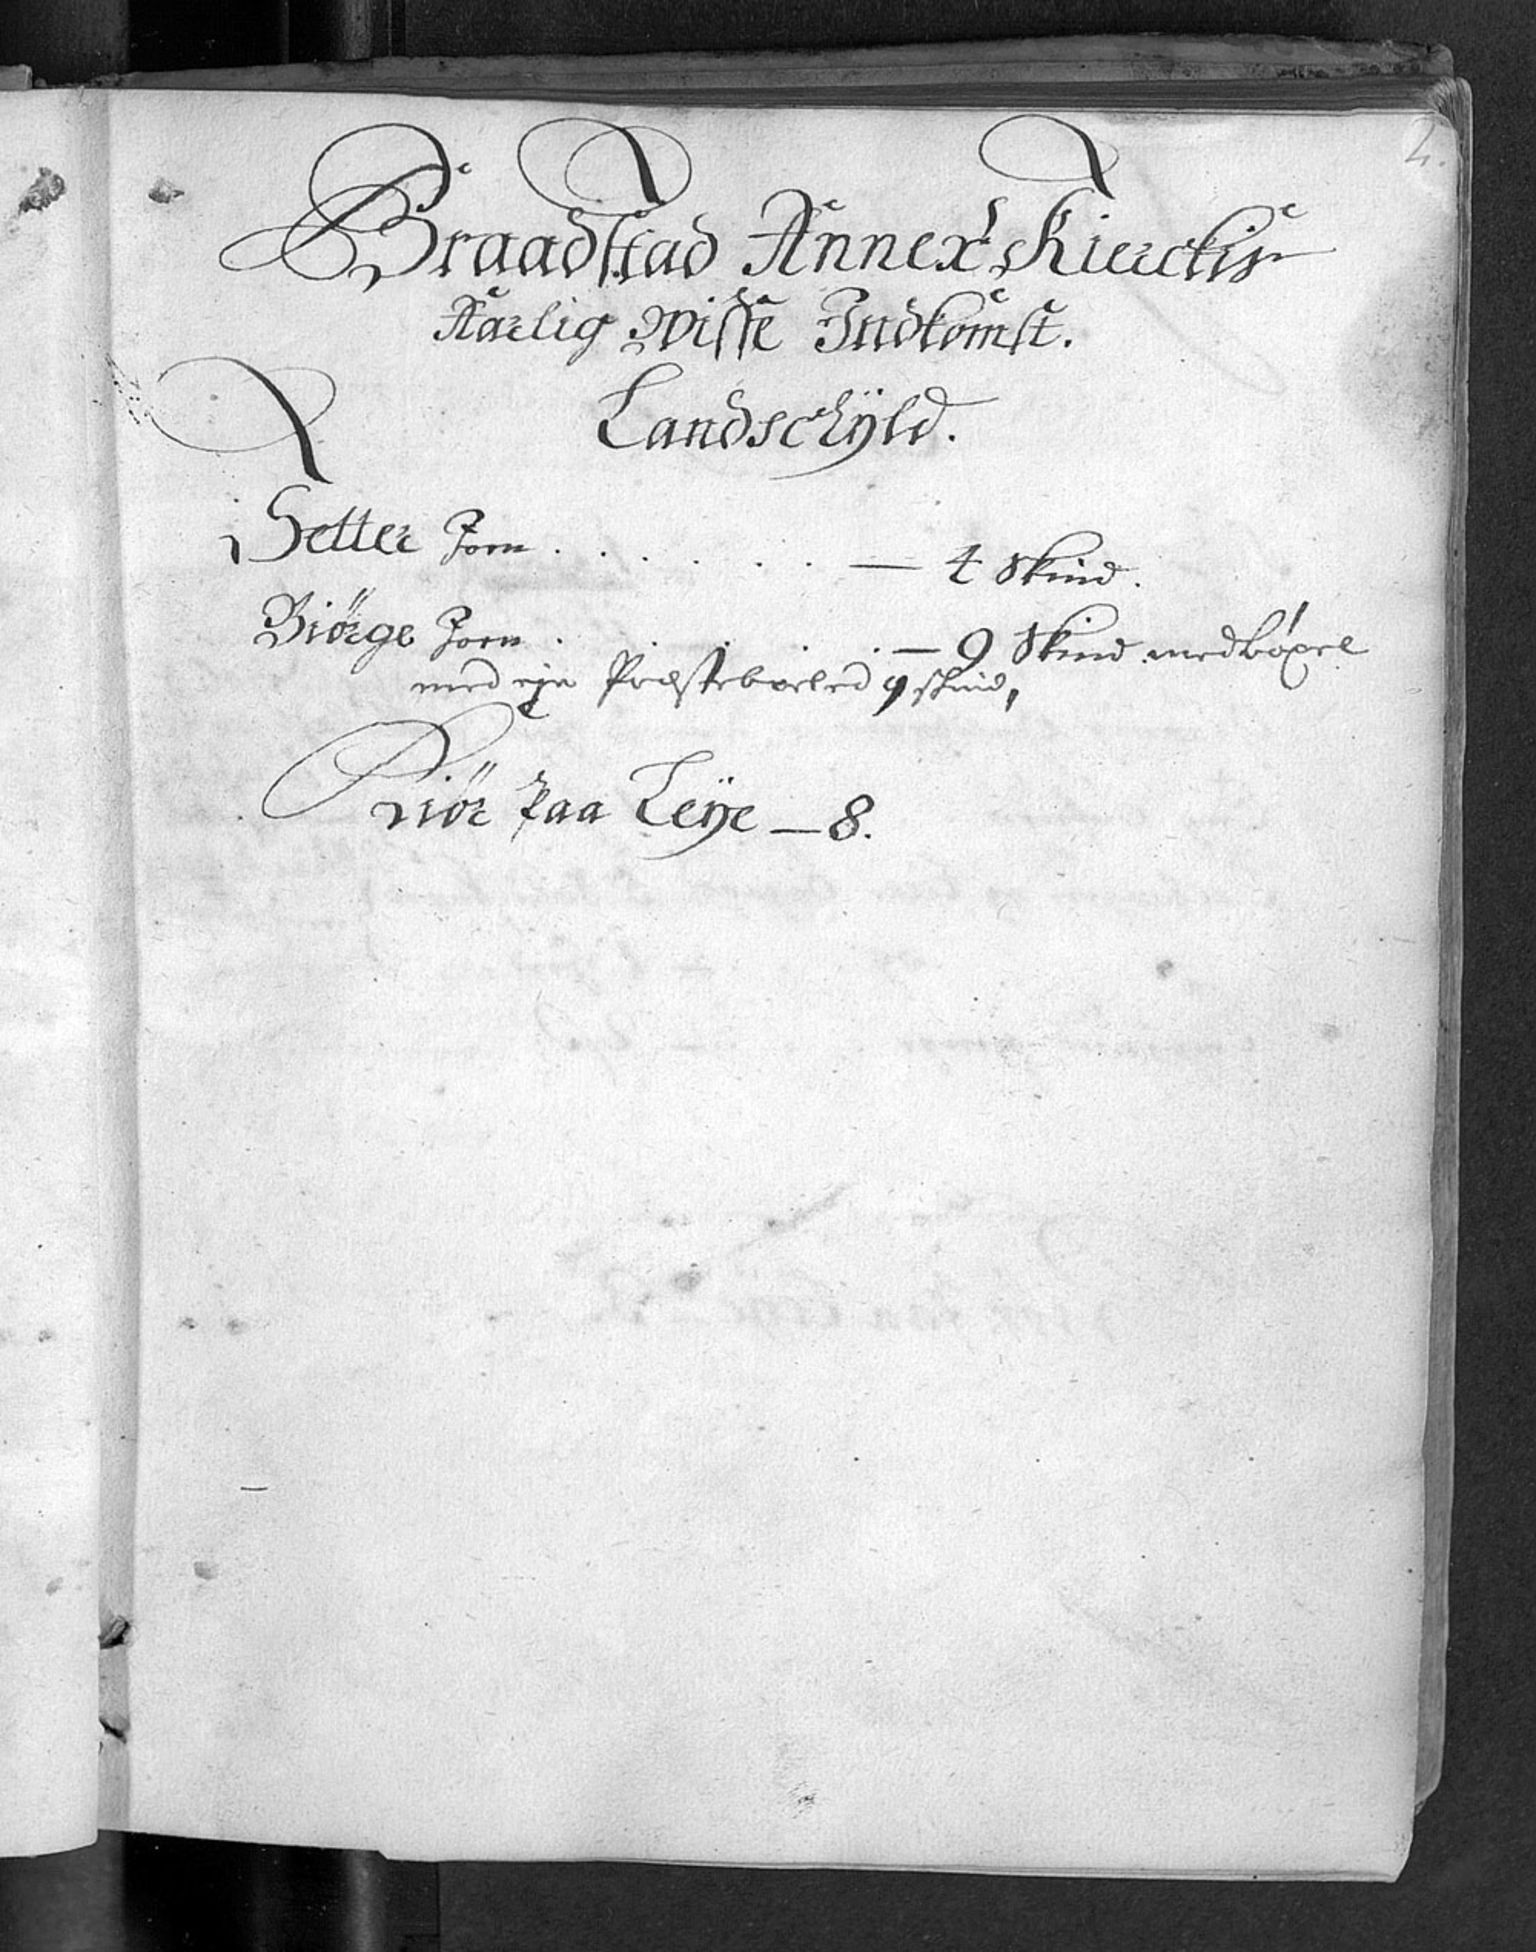 2.
Braadstad Annex Kierckis
Aarlig Wisse Indkomst.
Landschÿld.
Setter Jorn . . . . . . . — 4 Skind.
Biörge Jorn . . . . — 9 Skind med bóxel
med eya Præsteboled 9 skind,
Kiör paa Leÿe — 8.